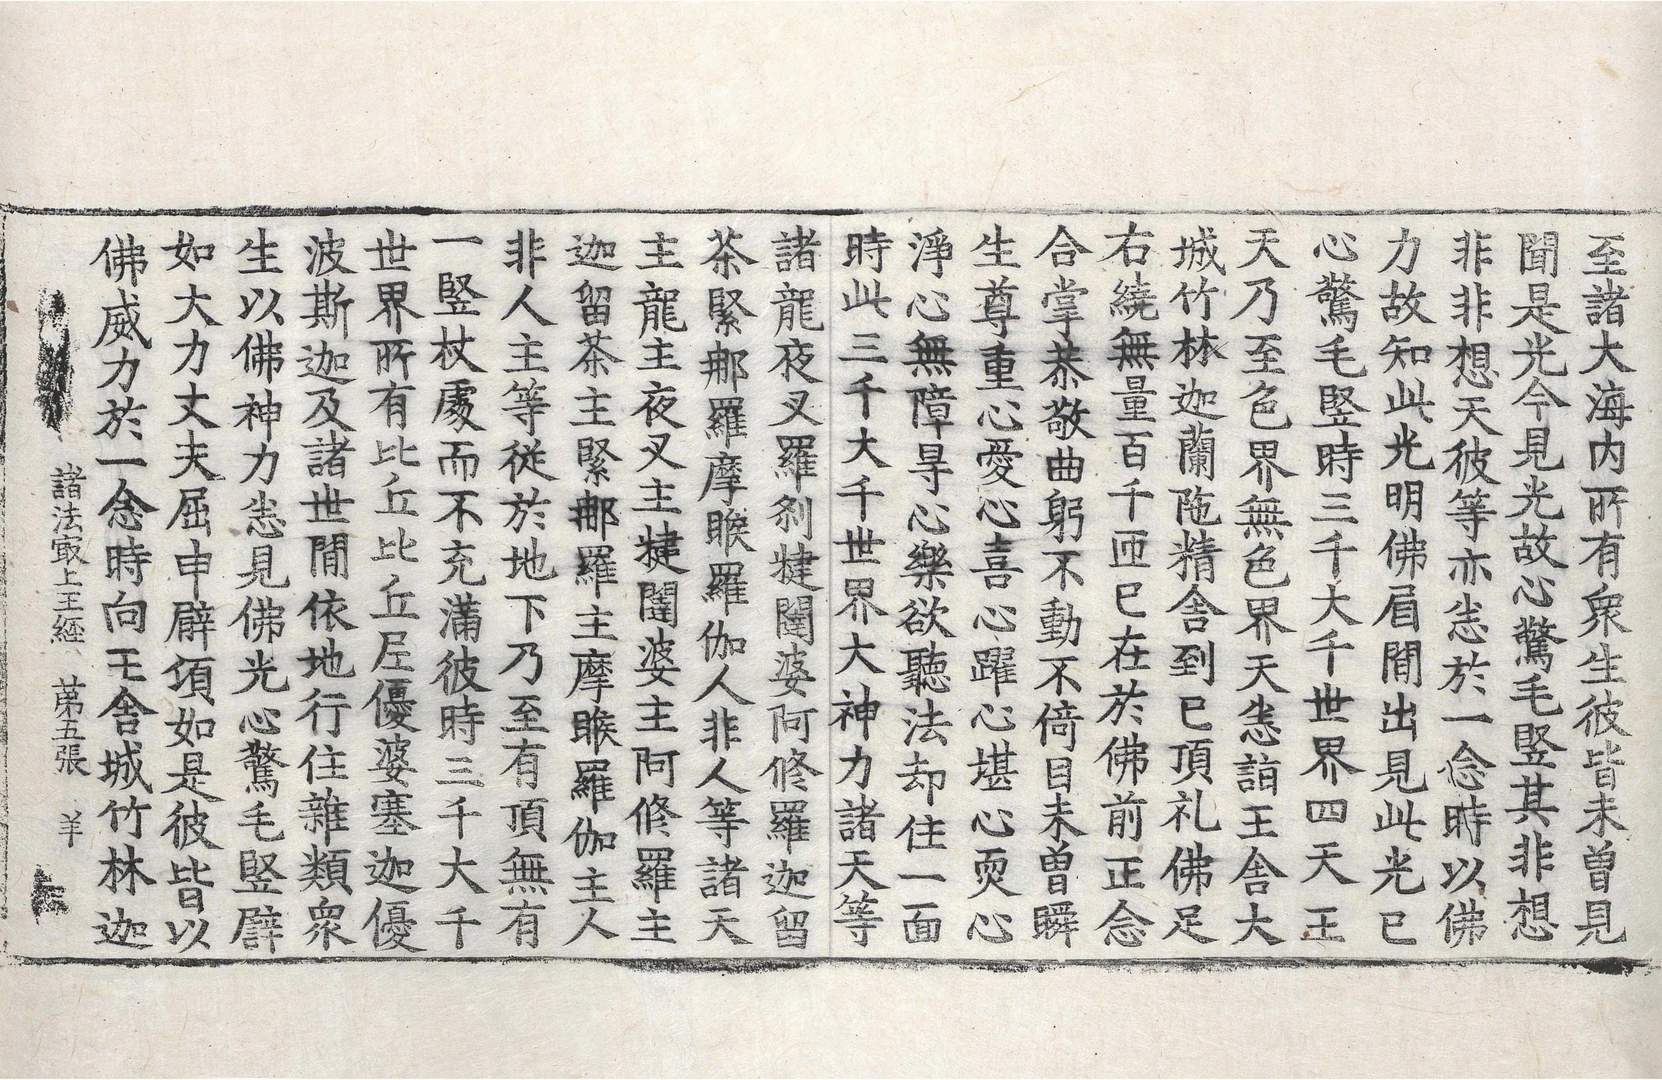 至諸大海内所有衆生彼皆未曾見
聞是光今見光故心驚毛竪其非想
非非想天彼等亦悉於一念時以佛
力故知此光明佛眉間出見此光已
心驚毛竪時三千大千世界四天王
天乃至色界無色界天悉詣王舍大
城竹林迦蘭陁精舍到已頂礼佛足
右繞無量百千匝已在於佛前正念
合掌恭敬曲躬不動不倚目未曾瞬
生尊重心愛心喜心躍心堪心耎心
淨心無障㝵心樂欲聽法却住一面
時此三千大千世界大神力諸天等
諸龍夜叉羅刹揵闥婆阿修羅迦留
茶緊那羅摩睺羅伽人非人等諸天
主龍主夜叉主揵闥婆主阿修羅主
迦留茶主緊那羅主摩睺羅伽主人
非人主等從於地下乃至有頂無有
一竪杖處而不充滿彼時三千大千
世界所有比丘比丘尼優婆塞迦優
波斯迦及諸世間依地行住雜類衆
生以佛神力悉見佛光心驚毛竪譬
如大力丈夫屈申臂頃如是彼皆以
佛威力於一念時向王舍城竹林迦
諸法㝡上王經 苐五張 羊